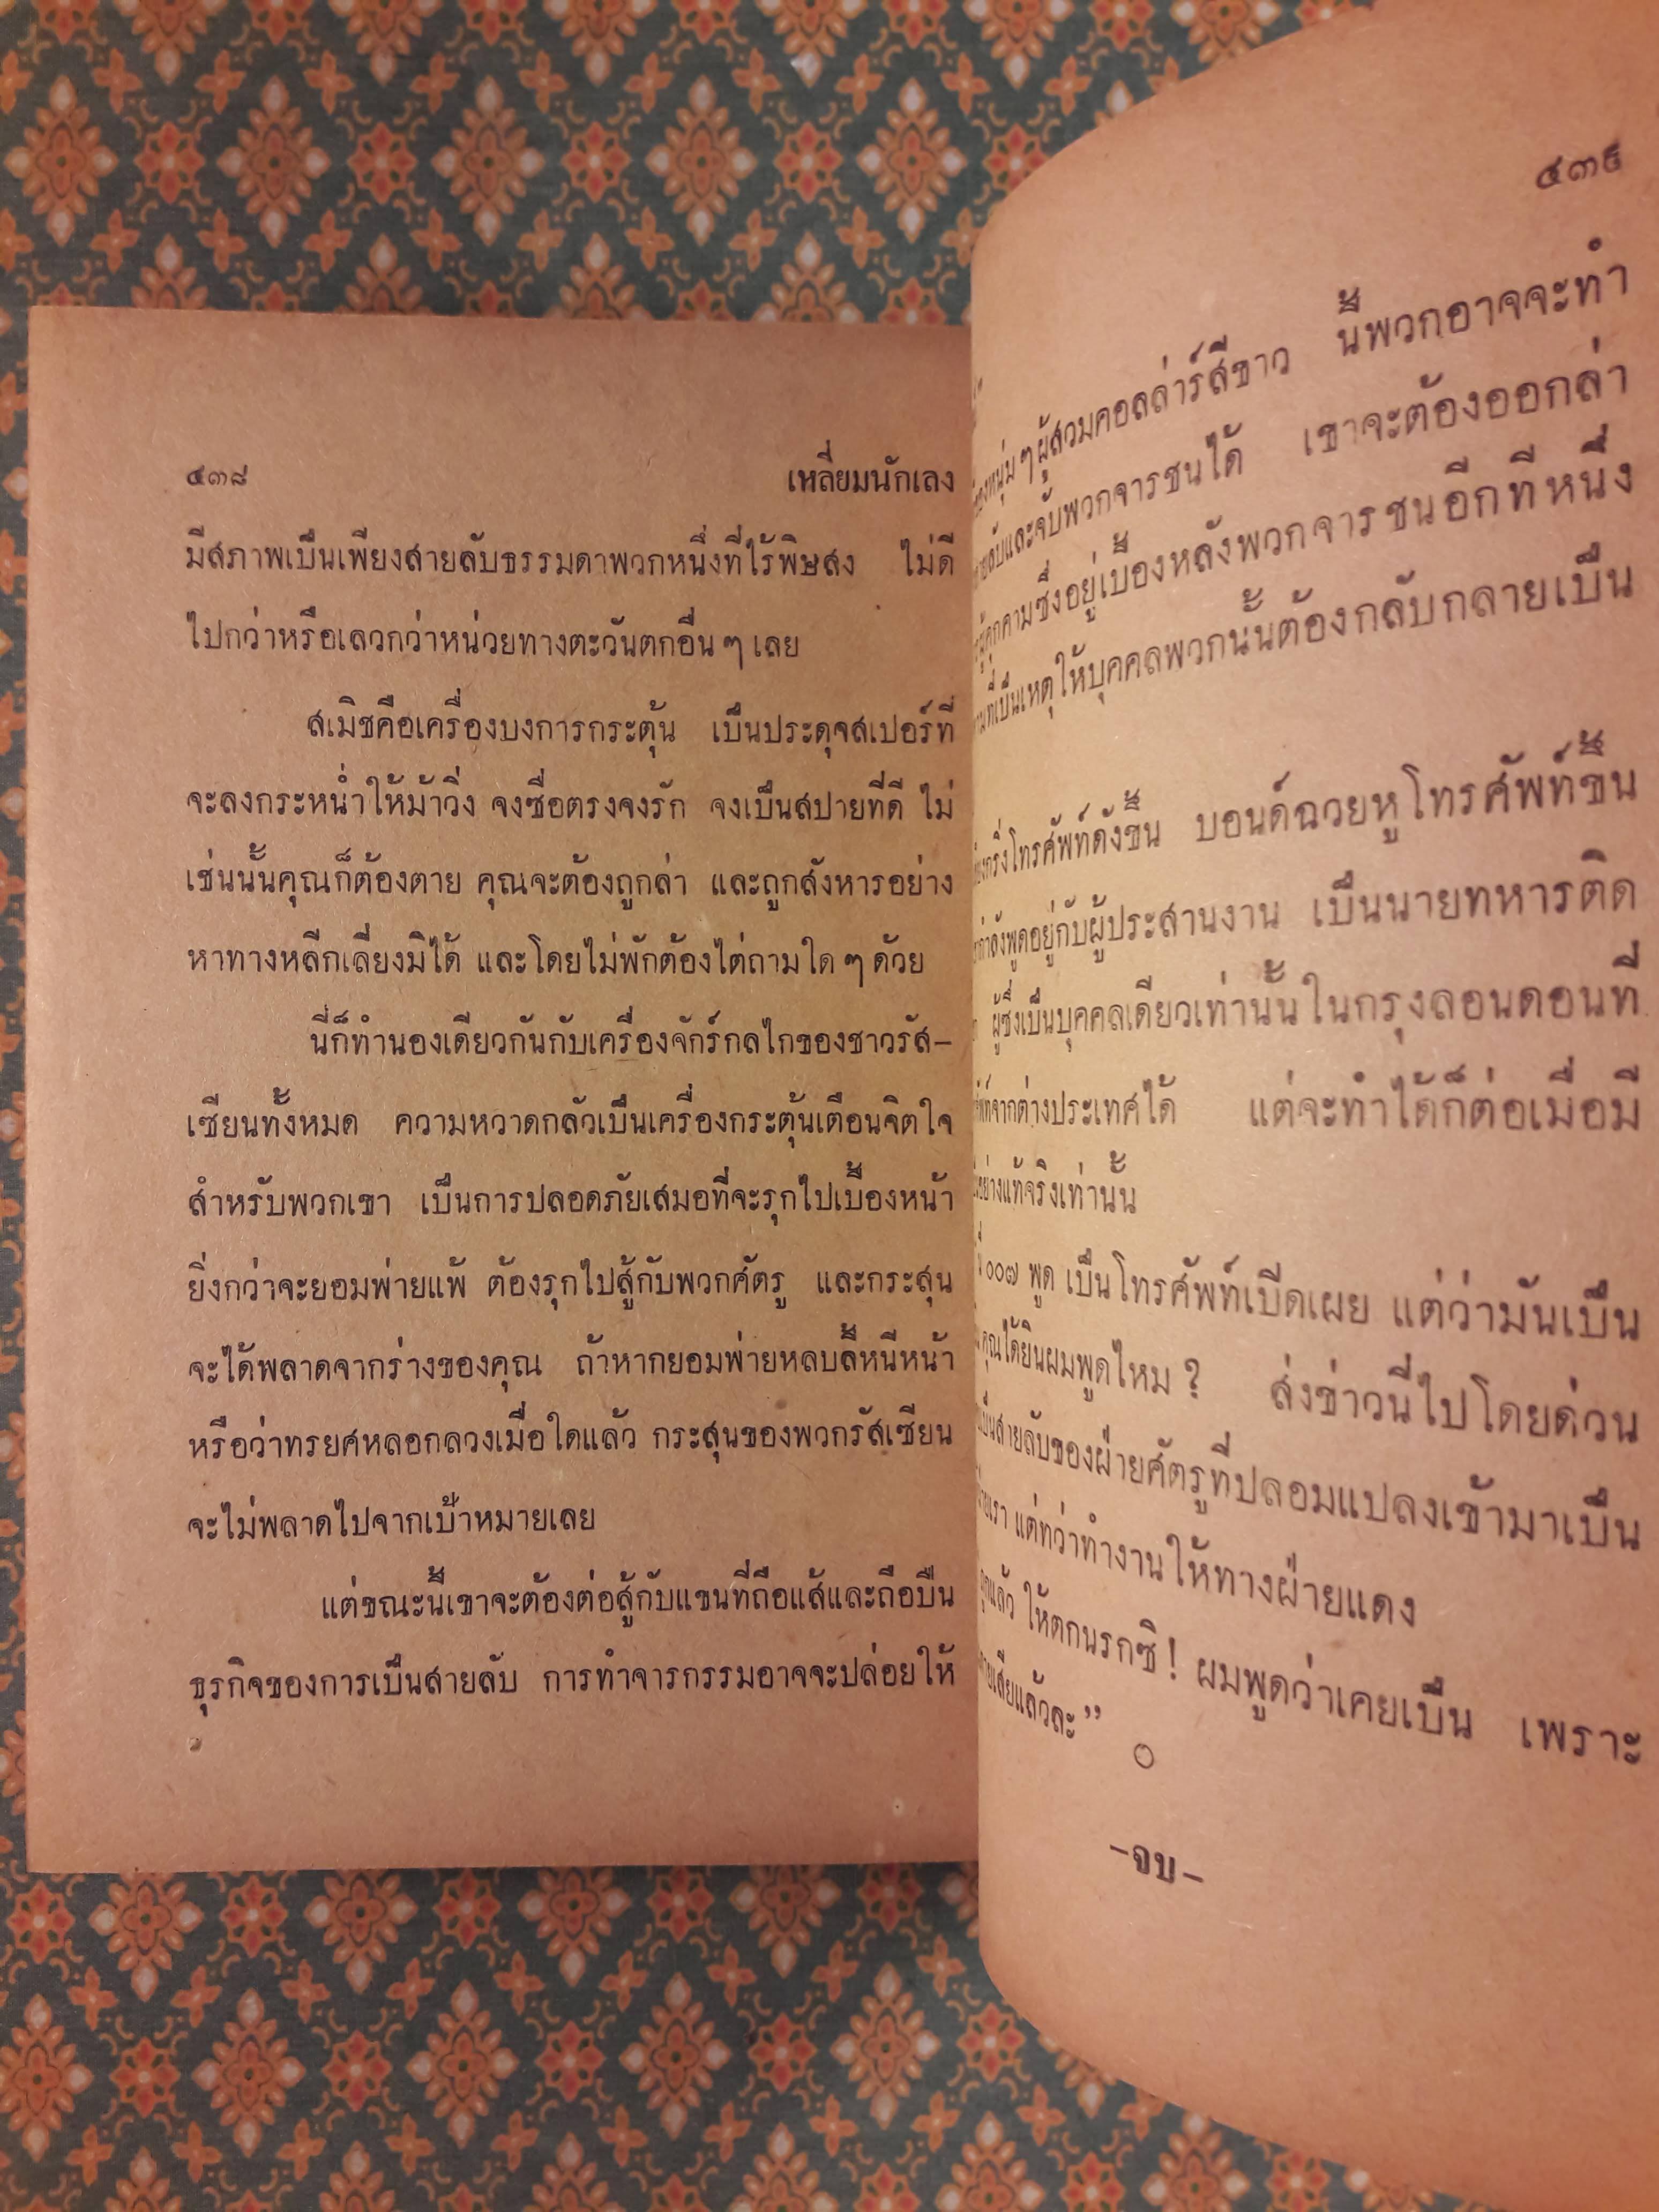 ๔๓๘ เหลี่ยมนักเลง
มีสภาพเป็นเพียงสายลับธรรมดาพวกหนึ่งที่ไร้พิษสง ไม่ดี
ไปกว่าหรือเลวกว่าหน่วยทางตะวันตกอื่น ๆ เลย
สเมิชคือเครื่องบงการกระตุ้น เป็นประดุจสเปอร์ที่
จะลงกระหน่ำให้ม้าวิ่ง จงซื่อตรงจงรัก จงเป็นสปายที่ดี ไม่
เช่นนั้นคุณก็ต้องตาย คุณจะต้องถูกล่า และถูกสังหารอย่าง
หาทางหลีกเลี่ยงมิได้ และโดยไม่พักต้องไต่ถามใด ๆ ด้วย
นี่ก็ทำนองเดียวกันกับเครื่องจักร์กลไกของชาวรัส-
เซียนทั้งหมด ความหวาดกลัวเป็นเครื่องกระตุ้นเตือนจิตใจ
สำหรับพวกเขา เป็นการปลอดภัยเสมอที่จะรุกไปเบื้องหน้า
ยิ่งกว่าจะยอมพ่ายแพ้ ต้องรุกไปสู้กับพวกศัตรู และกระสุน
จะได้พลาดจากร่างของคุณ ถ้าหากยอมพ่ายหลบลี้หนีหน้า
หรือว่าทรยศหลอกลวงเมื่อใดแล้ว กระสุนของพวกรัสเซียน
จะไม่พลาดไปจากเป้าหมายเลย
แต่ขณะนี้เขาจะต้องต่อสู้กับแขนที่ถือแส้และถือปืน
ธุรกิจของการเป็นสายลับ การทำจารกรรมอาจจะปล่อยให้
๔๓๙
หนุ่ม ๆ ผู้สวมคอลล่าร์สีขาว นี้พวกอาจจะทำ
และจับพวกจารชนได้ เขาจะต้องออกล่า
ผู้คุกคามซึ่งอยู่เบื้องหลังพวกจารชนอีกทีหนึ่ง
ที่เป็นเหตุให้บุคคลพวกนั้นต้องกลับกลายเป็น
กริ่งโทรศัพท์ดังขึ้น บอนด์ฉวยหูโทรศัพท์ขึ้น
กำลังพูดอยู่กับผู้ประสานงาน เป็นนายทหารติด
ผู้ซึ่งเป็นบุคคลเดียวเท่านั้นในกรุงลอนดอนที่
จากต่างประเทศได้ แต่จะทำได้ก็ต่อเมื่อมี
อย่างแท้จริงเท่านั้น
๐๐๗ พูด เป็นโทรศัพท์เปิดเผย แต่ว่ามันเป็น
คุณได้ยินผมพูดไหม ? ส่งข่าวนี้ไปโดยด่วน
เป็นสายลับของฝ่ายศัตรูที่ปลอมแปลงเข้ามาเป็น
เรา แต่ทว่าทำงานให้ทางฝ่ายแดง
ถูกแล้ว ให้ตกนรกซิ ! ผมพูดว่าเคยเป็น เพราะ
ตายเสียแล้วละ”
-จบ-